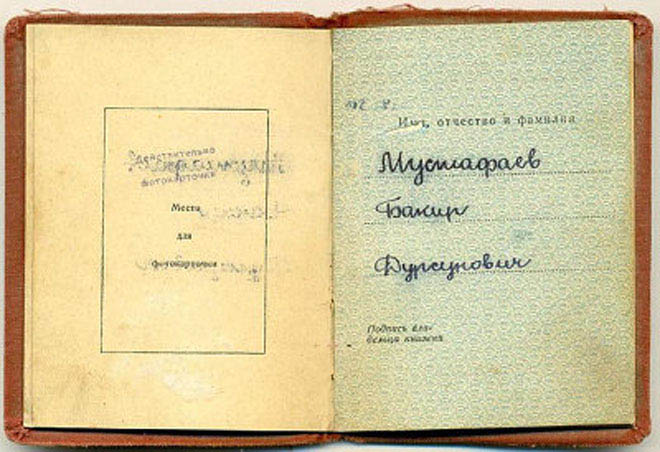 Действительно
фотокарточки
Место
для
фотокарточки
Имя, отчество и фамилия
Мустафаев
Бакир
Дурсунович
Подпись вла-
дельца книжки